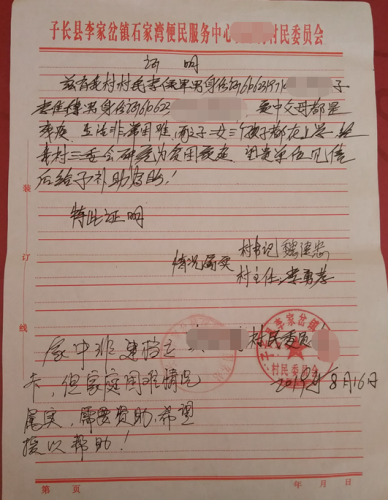 子长县李家岔镇石家湾便民服务中心 村民委员会
证明
兹有我村村民李 男身份 子
李 男身份 家中父母都是
残疾,生活非常困难,而子女三个孩子都在上学,经
我村三委会研究为贫困家庭,望贵单位见信
后给予补助资助!
特此证明
村书记
情况属实
村主任:李
村民委员
家中非建档立
卡,但家庭困难情况
属实,需要资助,希望
给以帮助!
2019年8月16日
子 李家岔镇
村民委员会
装
订
线
第 页
年 月 日